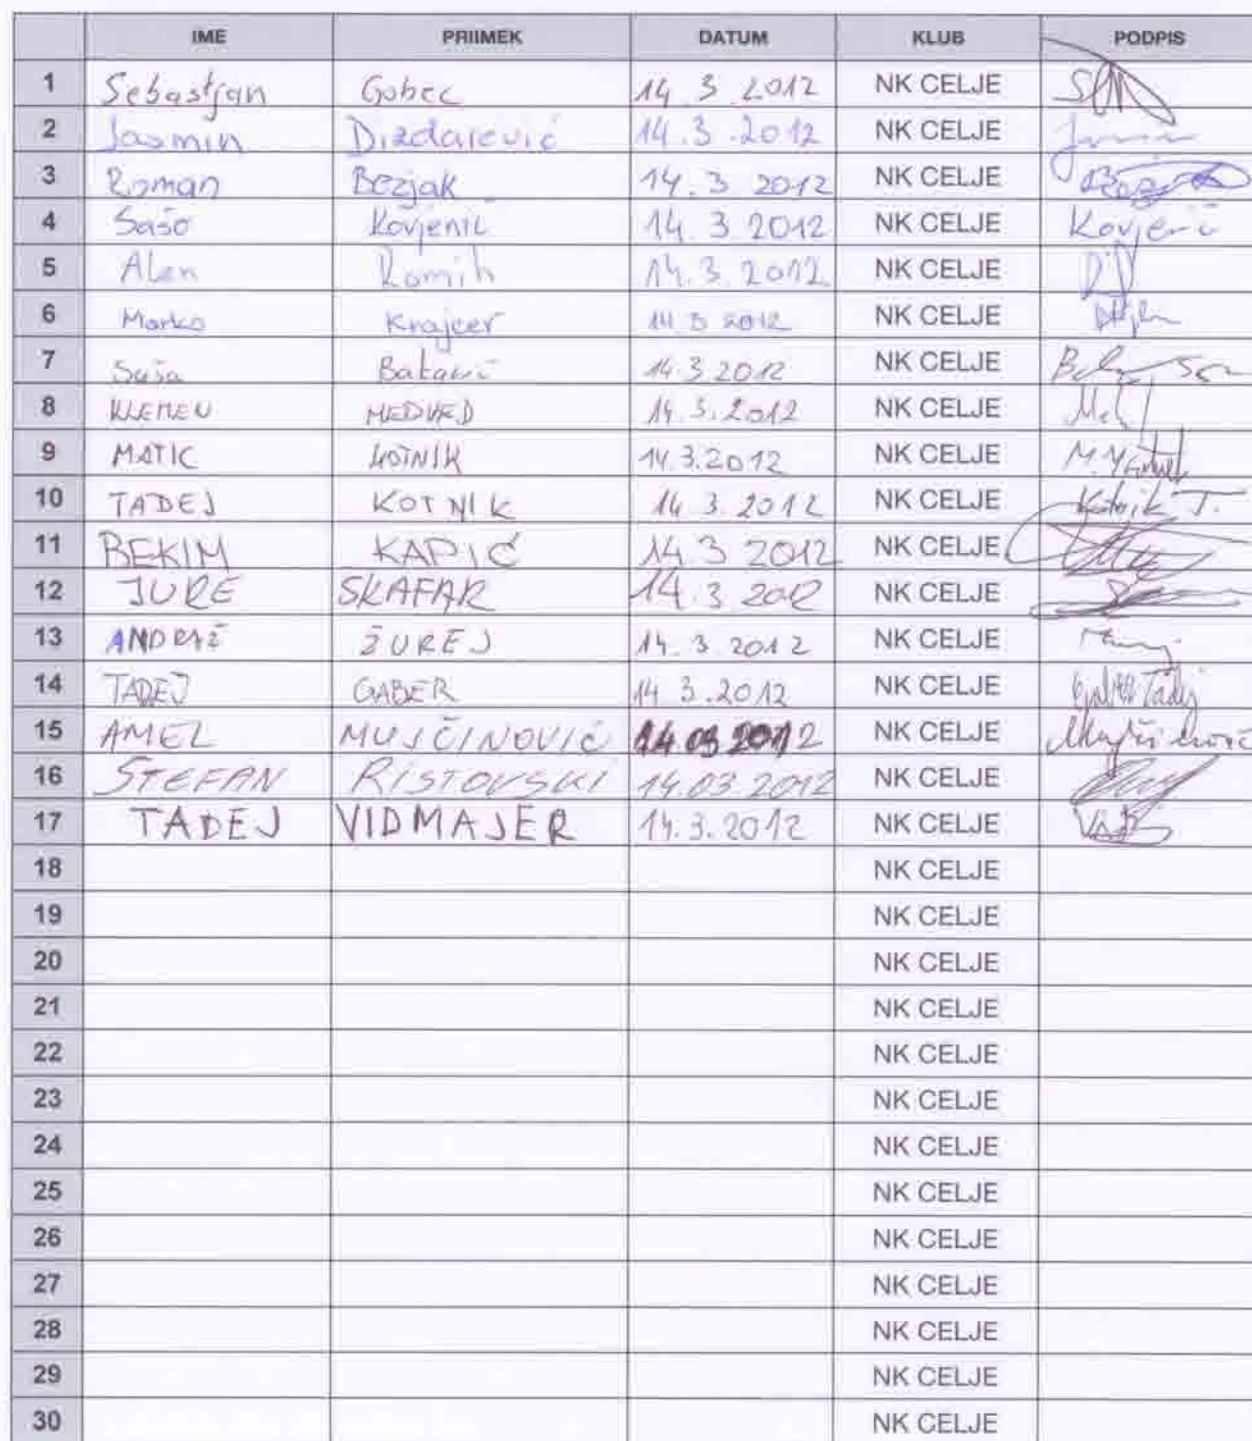 IME PRIIMEK DATUM KLUB PODPIS
1 Sebastjan Gobec 14 3 2012 NK CELJE
2 Jasmin Dizdarević 14.3.2012 NK CELJE
3 Roman Bezjak 14.3 2012 NK CELJE
4 Sašo Kovjenić 14.3.2012 NK CELJE Kovjenič
5 Alen Romih 14.3.2012 NK CELJE
6 Marko Krajcer 14.3.2012 NK CELJE
7 Saša Bakarić 14.3.2012 NK CELJE
8 KLEMEN MEDVED 14.3.2012 NK CELJE
9 MATIC KOTNIK 14.3.2012 NK CELJE
10 TADEJ KOTNIK 14 3.2012 NK CELJE Kotnik T.
11 BEKIM KAPIĆ 14.3 2012 NK CELJE
12 JURE SKAFAR 14.3 2012 NK CELJE
13 ANDRAŽ ŽUREJ 14.3.2012 NK CELJE
14 TADEJ GABER 14 3.2012 NK CELJE Gaber Tadej
15 AMEL MUJČINOVIĆ 14.03 2012 NK CELJE Mujčinović
16 STEFAN RISTOVSKI 14.03.2012 NK CELJE
17 TADEJ VIDMAJER 14.3.2012 NK CELJE
18 NK CELJE
19 NK CELJE
20 NK CELJE
21 NK CELJE
22 NK CELJE
23 NK CELJE
24 NK CELJE
25 NK CELJE
26 NK CELJE
27 NK CELJE
28 NK CELJE
29 NK CELJE
30 NK CELJE